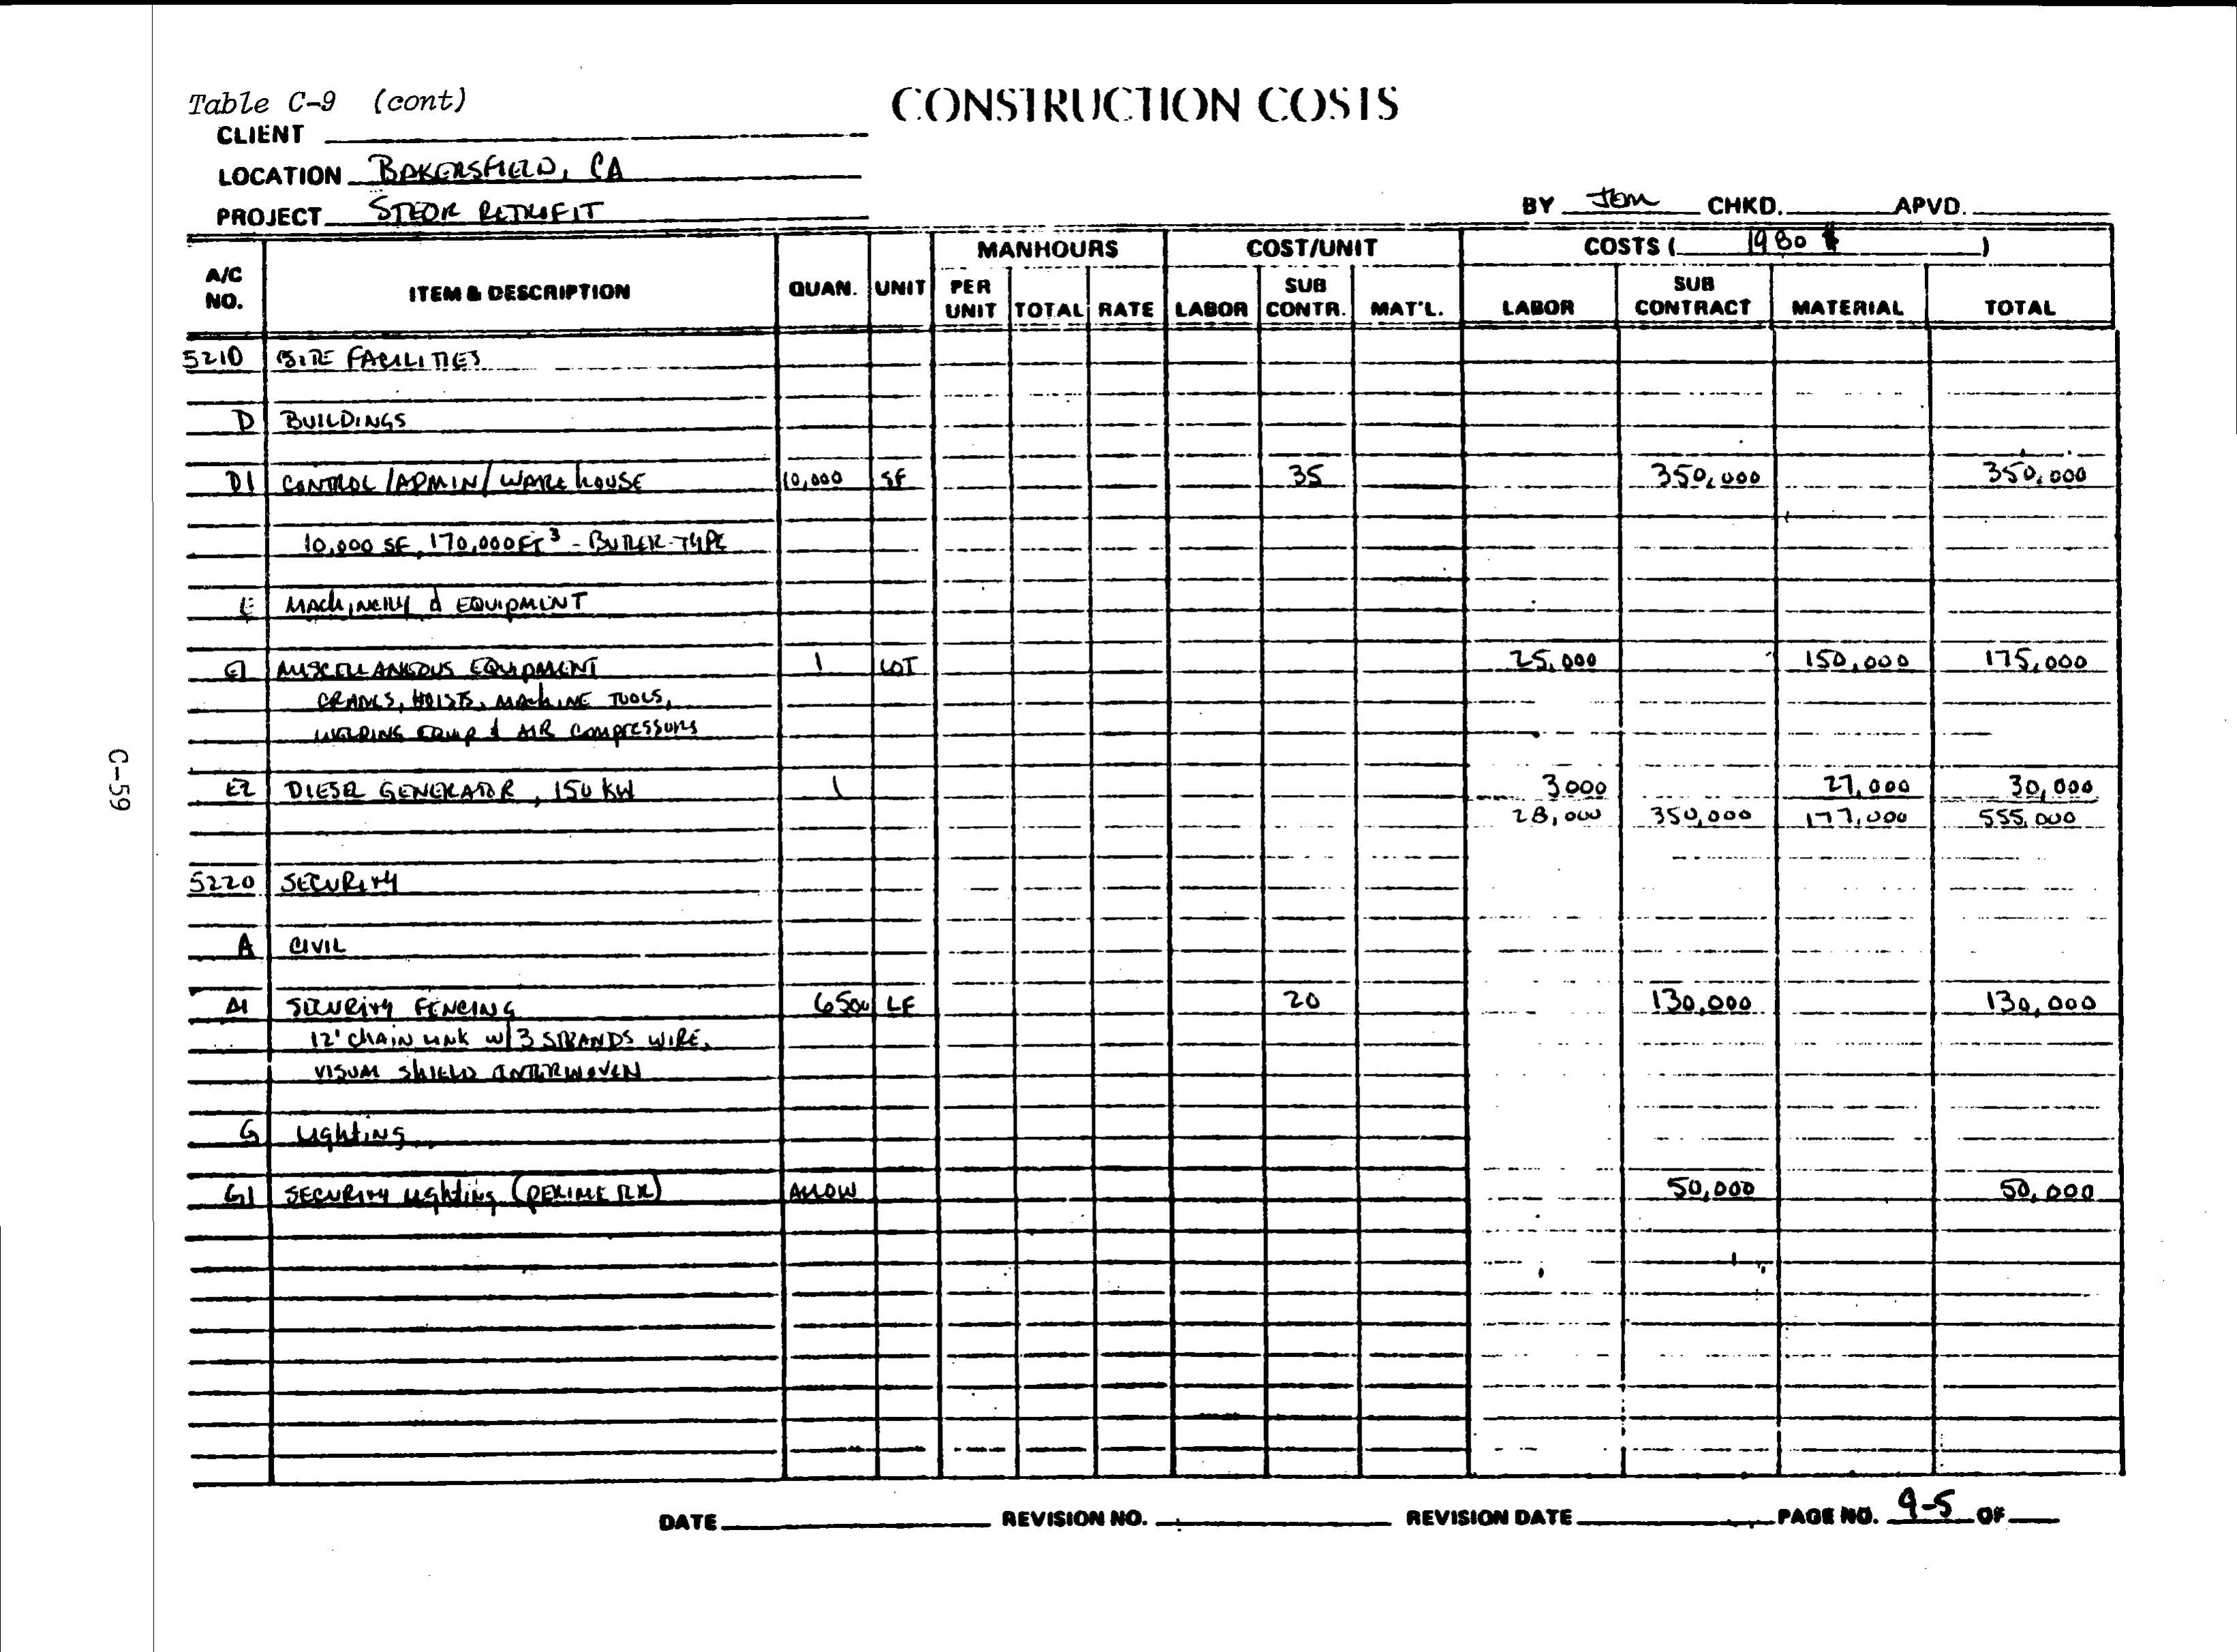 Table C-9 (cont)
CONSTRUCTION COSTS
CLIENT
LOCATION BAKERSFIELD, CA
PROJECT STEOR RETROFIT
BY JEM CHKD. APVD.
A/C NO. ITEM & DESCRIPTION QUAN. UNIT MANHOURS COST/UNIT COSTS ( 1980 $ )
PER UNIT TOTAL RATE LABOR SUB CONTR. MAT'L. LABOR SUB CONTRACT MATERIAL TOTAL
5210 SITE FACILITIES
D BUILDINGS
D1 CONTROL/ADMIN/WAREHOUSE 10,000 SF 35 350,000 350,000
10,000 SF, 170,000 FT³ - BUTLER-TYPE
E MACHINERY & EQUIPMENT
E1 MISCELLANEOUS EQUIPMENT 1 LOT 25,000 150,000 175,000
CRANES, HOISTS, MACHINE TOOLS,
WELDING EQUIP & AIR COMPRESSORS
E2 DIESEL GENERATOR, 150 KW 1 3000 27,000 30,000
28,000 350,000 177,000 555,000
5220 SECURITY
A CIVIL
A1 SECURITY FENCING 6500 LF 20 130,000 130,000
12' CHAIN LINK W/3 STRANDS WIRE,
VISUAL SHIELD INTERWOVEN
G LIGHTING
G1 SECURITY LIGHTING (PERIMETER) ALLOW 50,000 50,000
DATE REVISION NO. REVISION DATE PAGE NO. 9-5 OF
C-59